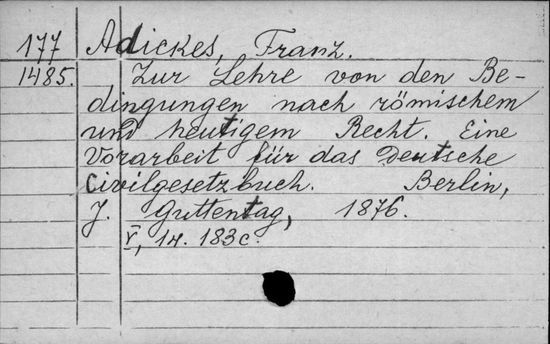 177 Adickes, Franz.
1485. Zur Lehre von den Be-
dingungen nach römischem
und heutigem Recht. Eine
Vorarbeit für das Deutsche
Civilgesetzbuch. Berlin,
J. Guttentag, 1876.
V, 14. 183 c.